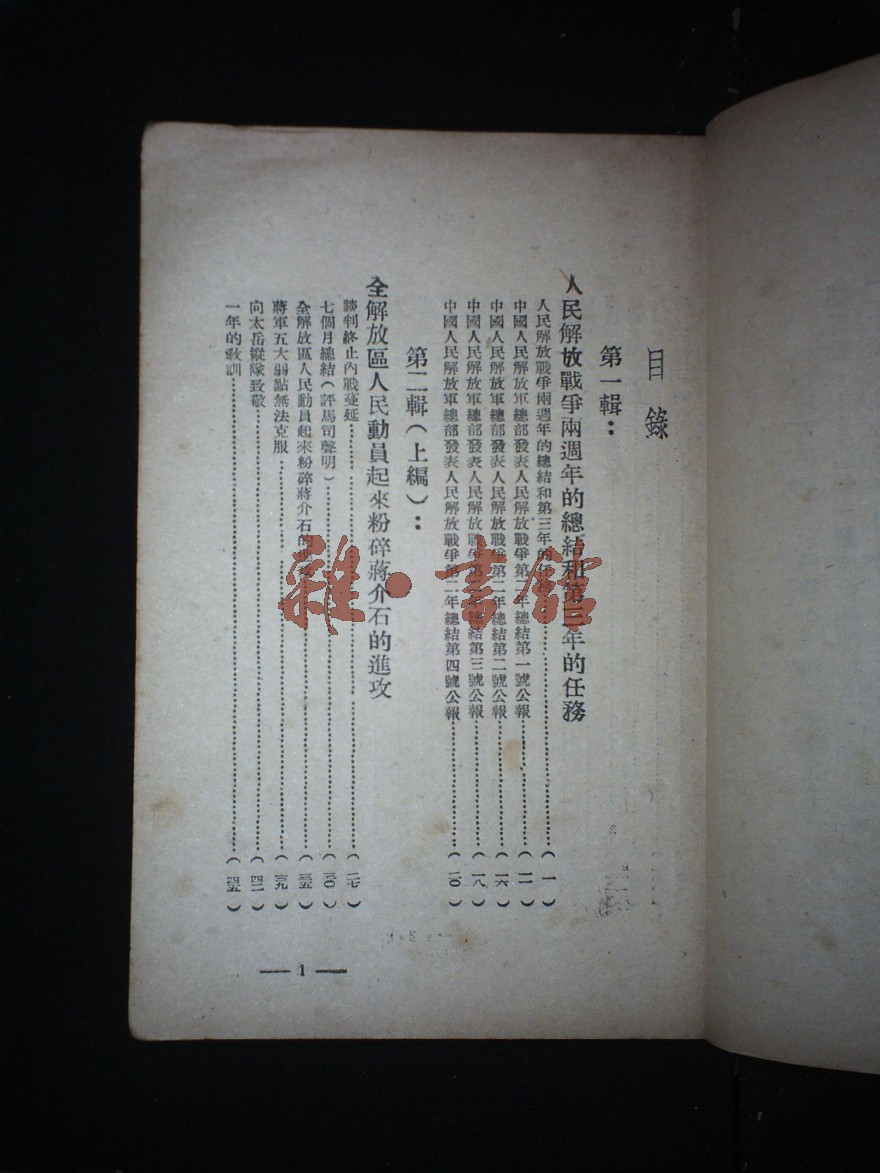 目錄
第一輯：
人民解放戰爭兩週年的總結和第三年的任務
人民解放戰爭兩週年的總結和第三年的任務……（一）
中國人民解放軍總部發表人民解放戰爭第二年總結第一號公報……（一一）
中國人民解放軍總部發表人民解放戰爭第二年總結第二號公報……（一六）
中國人民解放軍總部發表人民解放戰爭第二年總結第三號公報……（一八）
中國人民解放軍總部發表人民解放戰爭第二年總結第四號公報……（二〇）
第二輯（上編）：
全解放區人民動員起來粉碎蔣介石的進攻
談判終止內戰蔓延……（二七）
七個月總結（評馬司聲明）……（三〇）
全解放區人民動員起來粉碎蔣介石的進攻……（三五）
蔣軍五大弱點無法克服……（三九）
向太岳縱隊致敬……（四二）
一年的教訓……（四五）
— 1 —
雜·書館